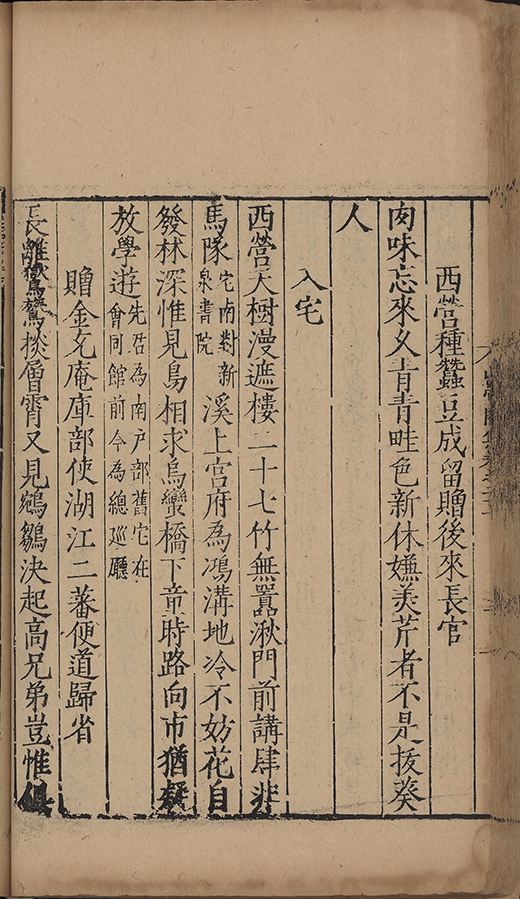 西營種蠶豆成留贈後來長官
肉味忘來久青青畦色新休嫌美芹者不是拔葵
人
入宅
西營天樹漫遮樓二十七竹無嚚湫門前講肆非
馬隊宅南對新泉書院溪上宮府為鴻溝地冷不妨花自
發林深惟見鳥相求烏蠻橋下童時路向市猶疑
教學遊先君為南户部舊宅在會同館前今為總巡廳
贈金允庵庫部使湖江二蕃便道歸省
長離鸑鷟掞層霄又見鵷鶵決起高兄弟豈惟俱